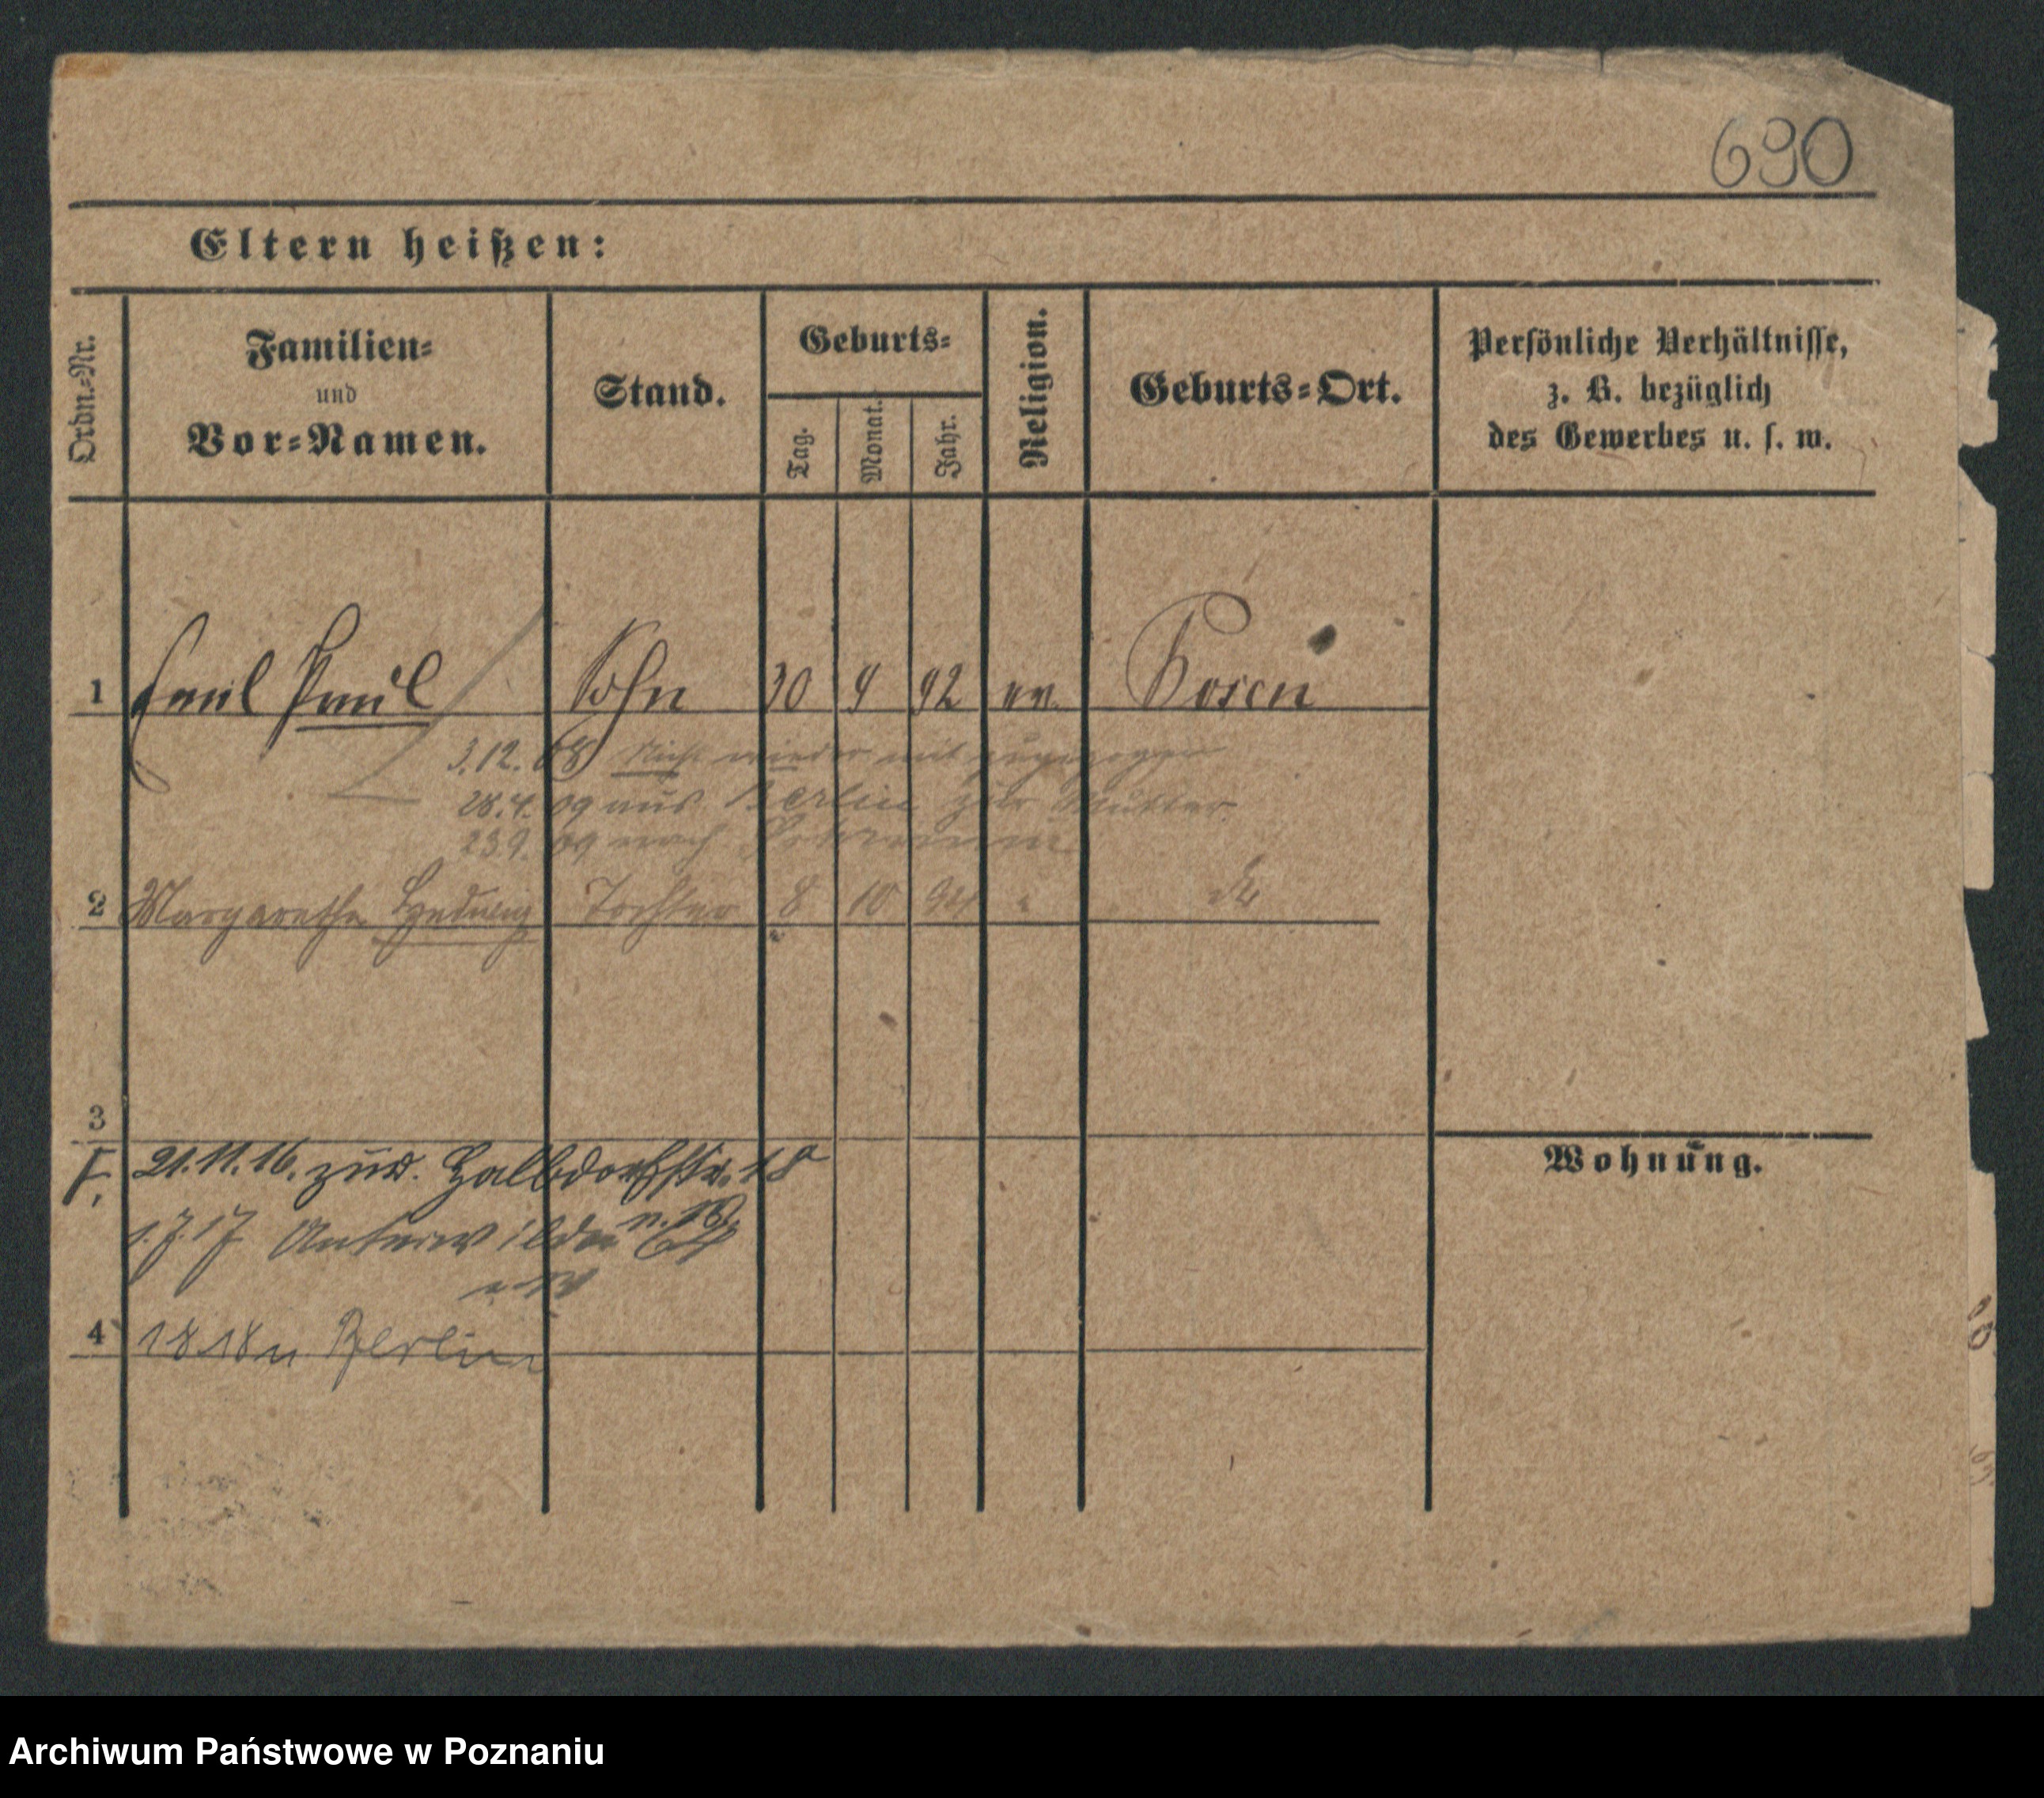 690
Eltern heißen:
Ordn.-Nr.
Familien-
und
Vor-Namen.
Stand.
Geburts-
Tag.
Monat.
Jahr.
Religion.
Geburts-Ort.
Persönliche Verhältnisse,
z. B. bezüglich
des Gewerbes u. s. w.
1 Emil Paul Sohn 30 9 92 ev. Posen
3.12.08 Nicht wieder mit zugezogen
28.4.09 aus Berlin zur Mutter
23.9.09 nach
2 Margarethe Hedwig Tochter 8 10 94 " do
3
F. 21.11.16. zur. Halbdorfstr. 18
Wohnung.
1.7.17 Unterwilda
4 1818 n Berlin
Archiwum Państwowe w Poznaniu